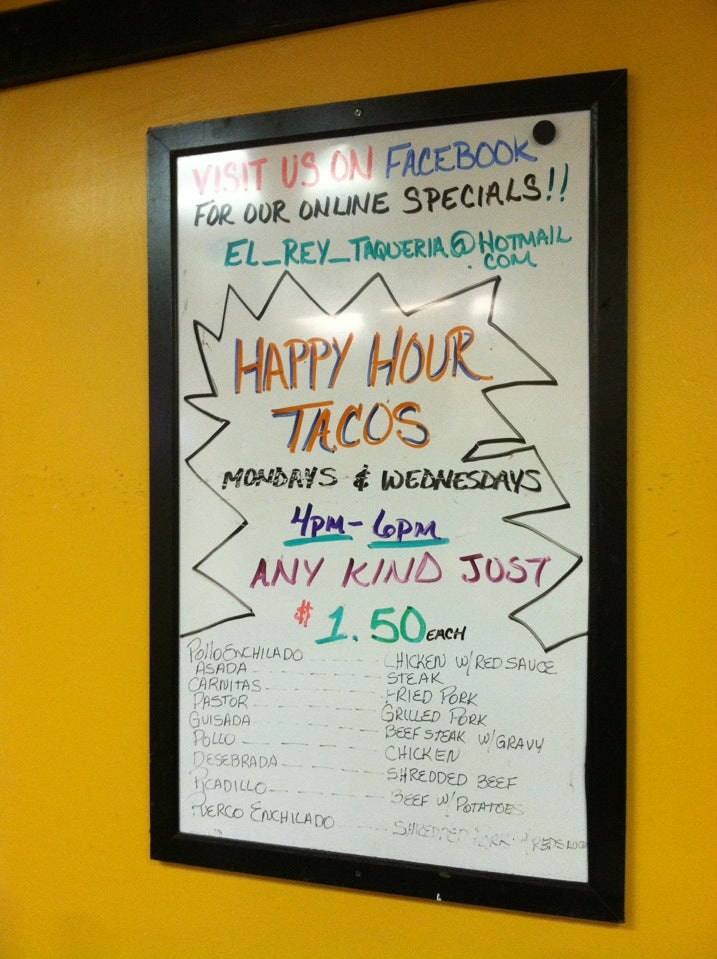 VISIT US ON FACEBOOK
FOR OUR ONLINE SPECIALS!!
EL_REY_TAQUERIA@HOTMAIL
.COM
HAPPY HOUR
TACOS
MONDAYS & WEDNESDAYS
4PM-6PM
ANY KIND JUST
$1.50 EACH
POLLO ENCHILADO CHICKEN W/RED SAUCE
ASADA STEAK
CARNITAS FRIED PORK
PASTOR GRILLED PORK
GUISADA BEEF STEAK W/GRAVY
POLLO CHICKEN
DESEBRADA SHREDDED BEEF
PICADILLO BEEF W/POTATOES
PUERCO ENCHILADO SHREDDED PORK W/RED